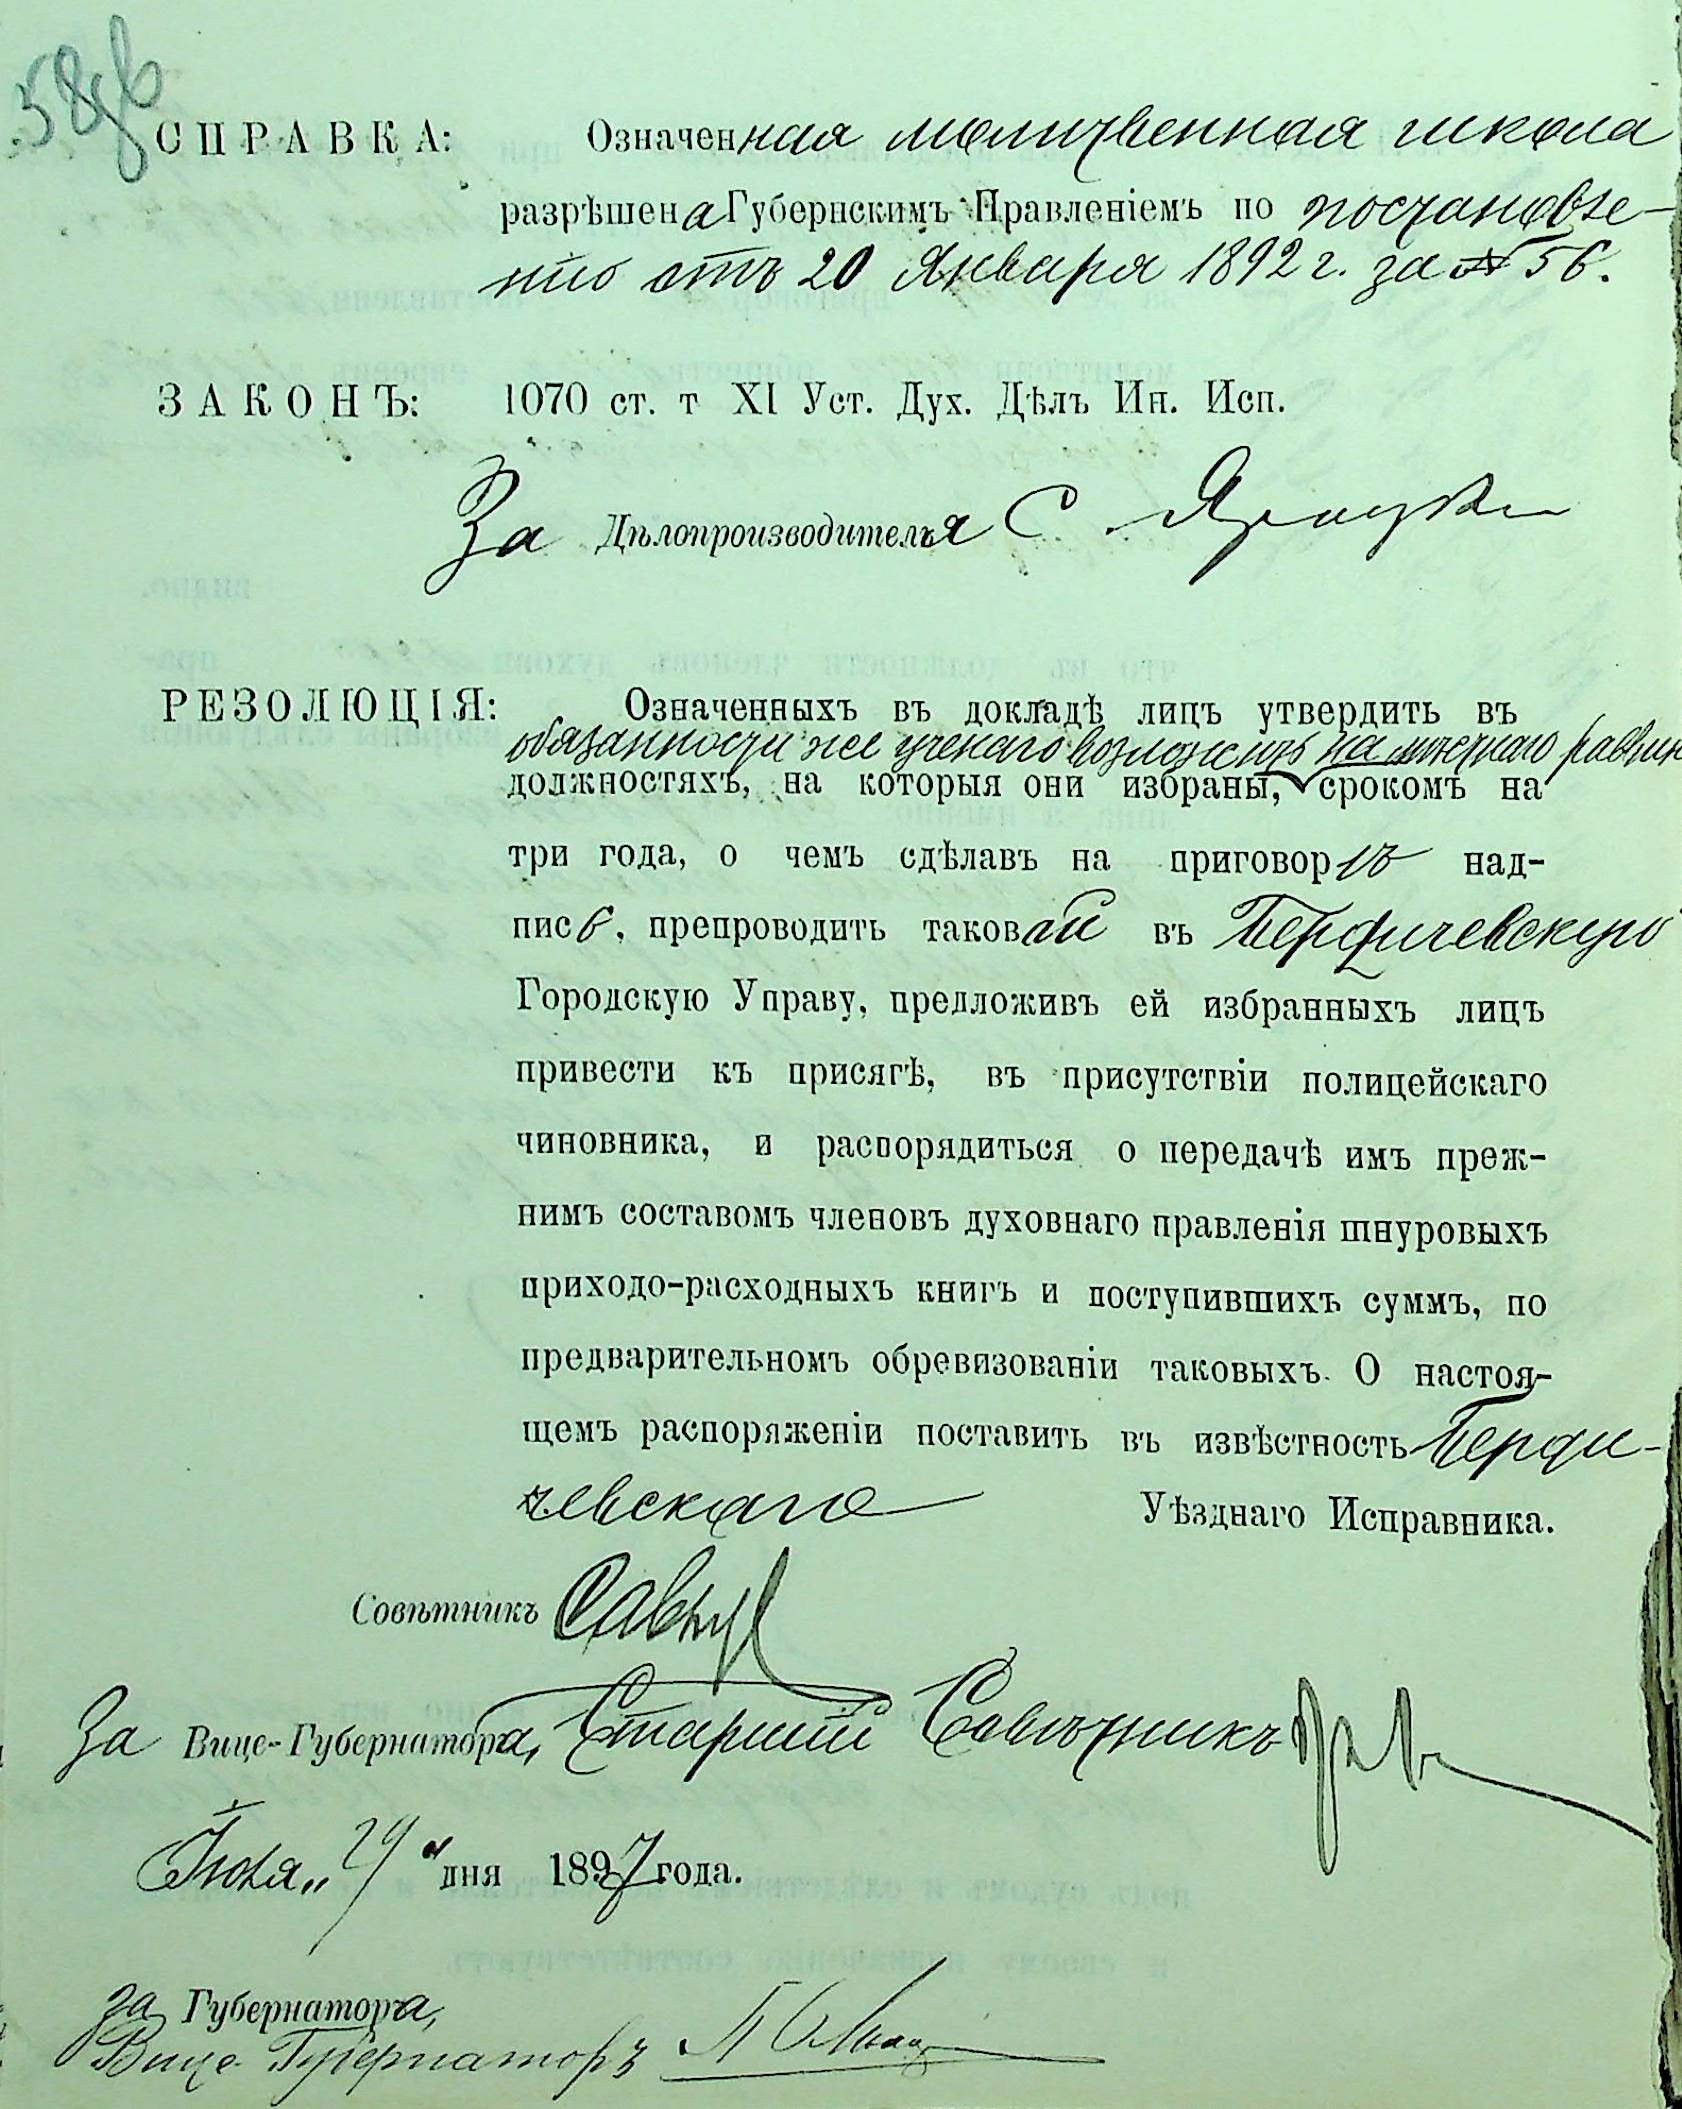 СПРАВКА: Означенная молитвенная школа
разрѣшена Губернскимъ Правленіемъ по постановле-
нію отъ 20 Января 1892 г. за № 56.
ЗАКОНЪ: 1070 ст. т XI Уст. Дух. Дѣлъ Ин. Исп.
За Дѣлопроизводителя С.
РЕЗОЛЮЦІЯ: Означенныхъ въ докладѣ лицъ утвердить въ
обязанности же ученаго возложить на мѣстнаго раввин
должностяхъ, на которыя они избраны, срокомъ на
три года, о чемъ сдѣлавъ на приговорѣ над-
пись, препроводить таковой въ Бердичевскую
Городскую Управу, предложивъ ей избранныхъ лицъ
привести къ присягѣ, въ присутствіи полицейскаго
чиновника, и распорядиться о передачѣ имъ преж-
нимъ составомъ членовъ духовнаго правленія шнуровыхъ
приходо-расходныхъ книгъ и поступившихъ суммъ, по
предварительномъ обревизованіи таковыхъ. О настоя-
щемъ распоряженіи поставить въ извѣстность Берди-
чевскаго Уѣзднаго Исправника.
Совѣтникъ
За Вице-Губернатора, Старшій Совѣтникъ
Іюля „ „ дня 1897 года.
За Губернатора,
Вице Губернаторъ